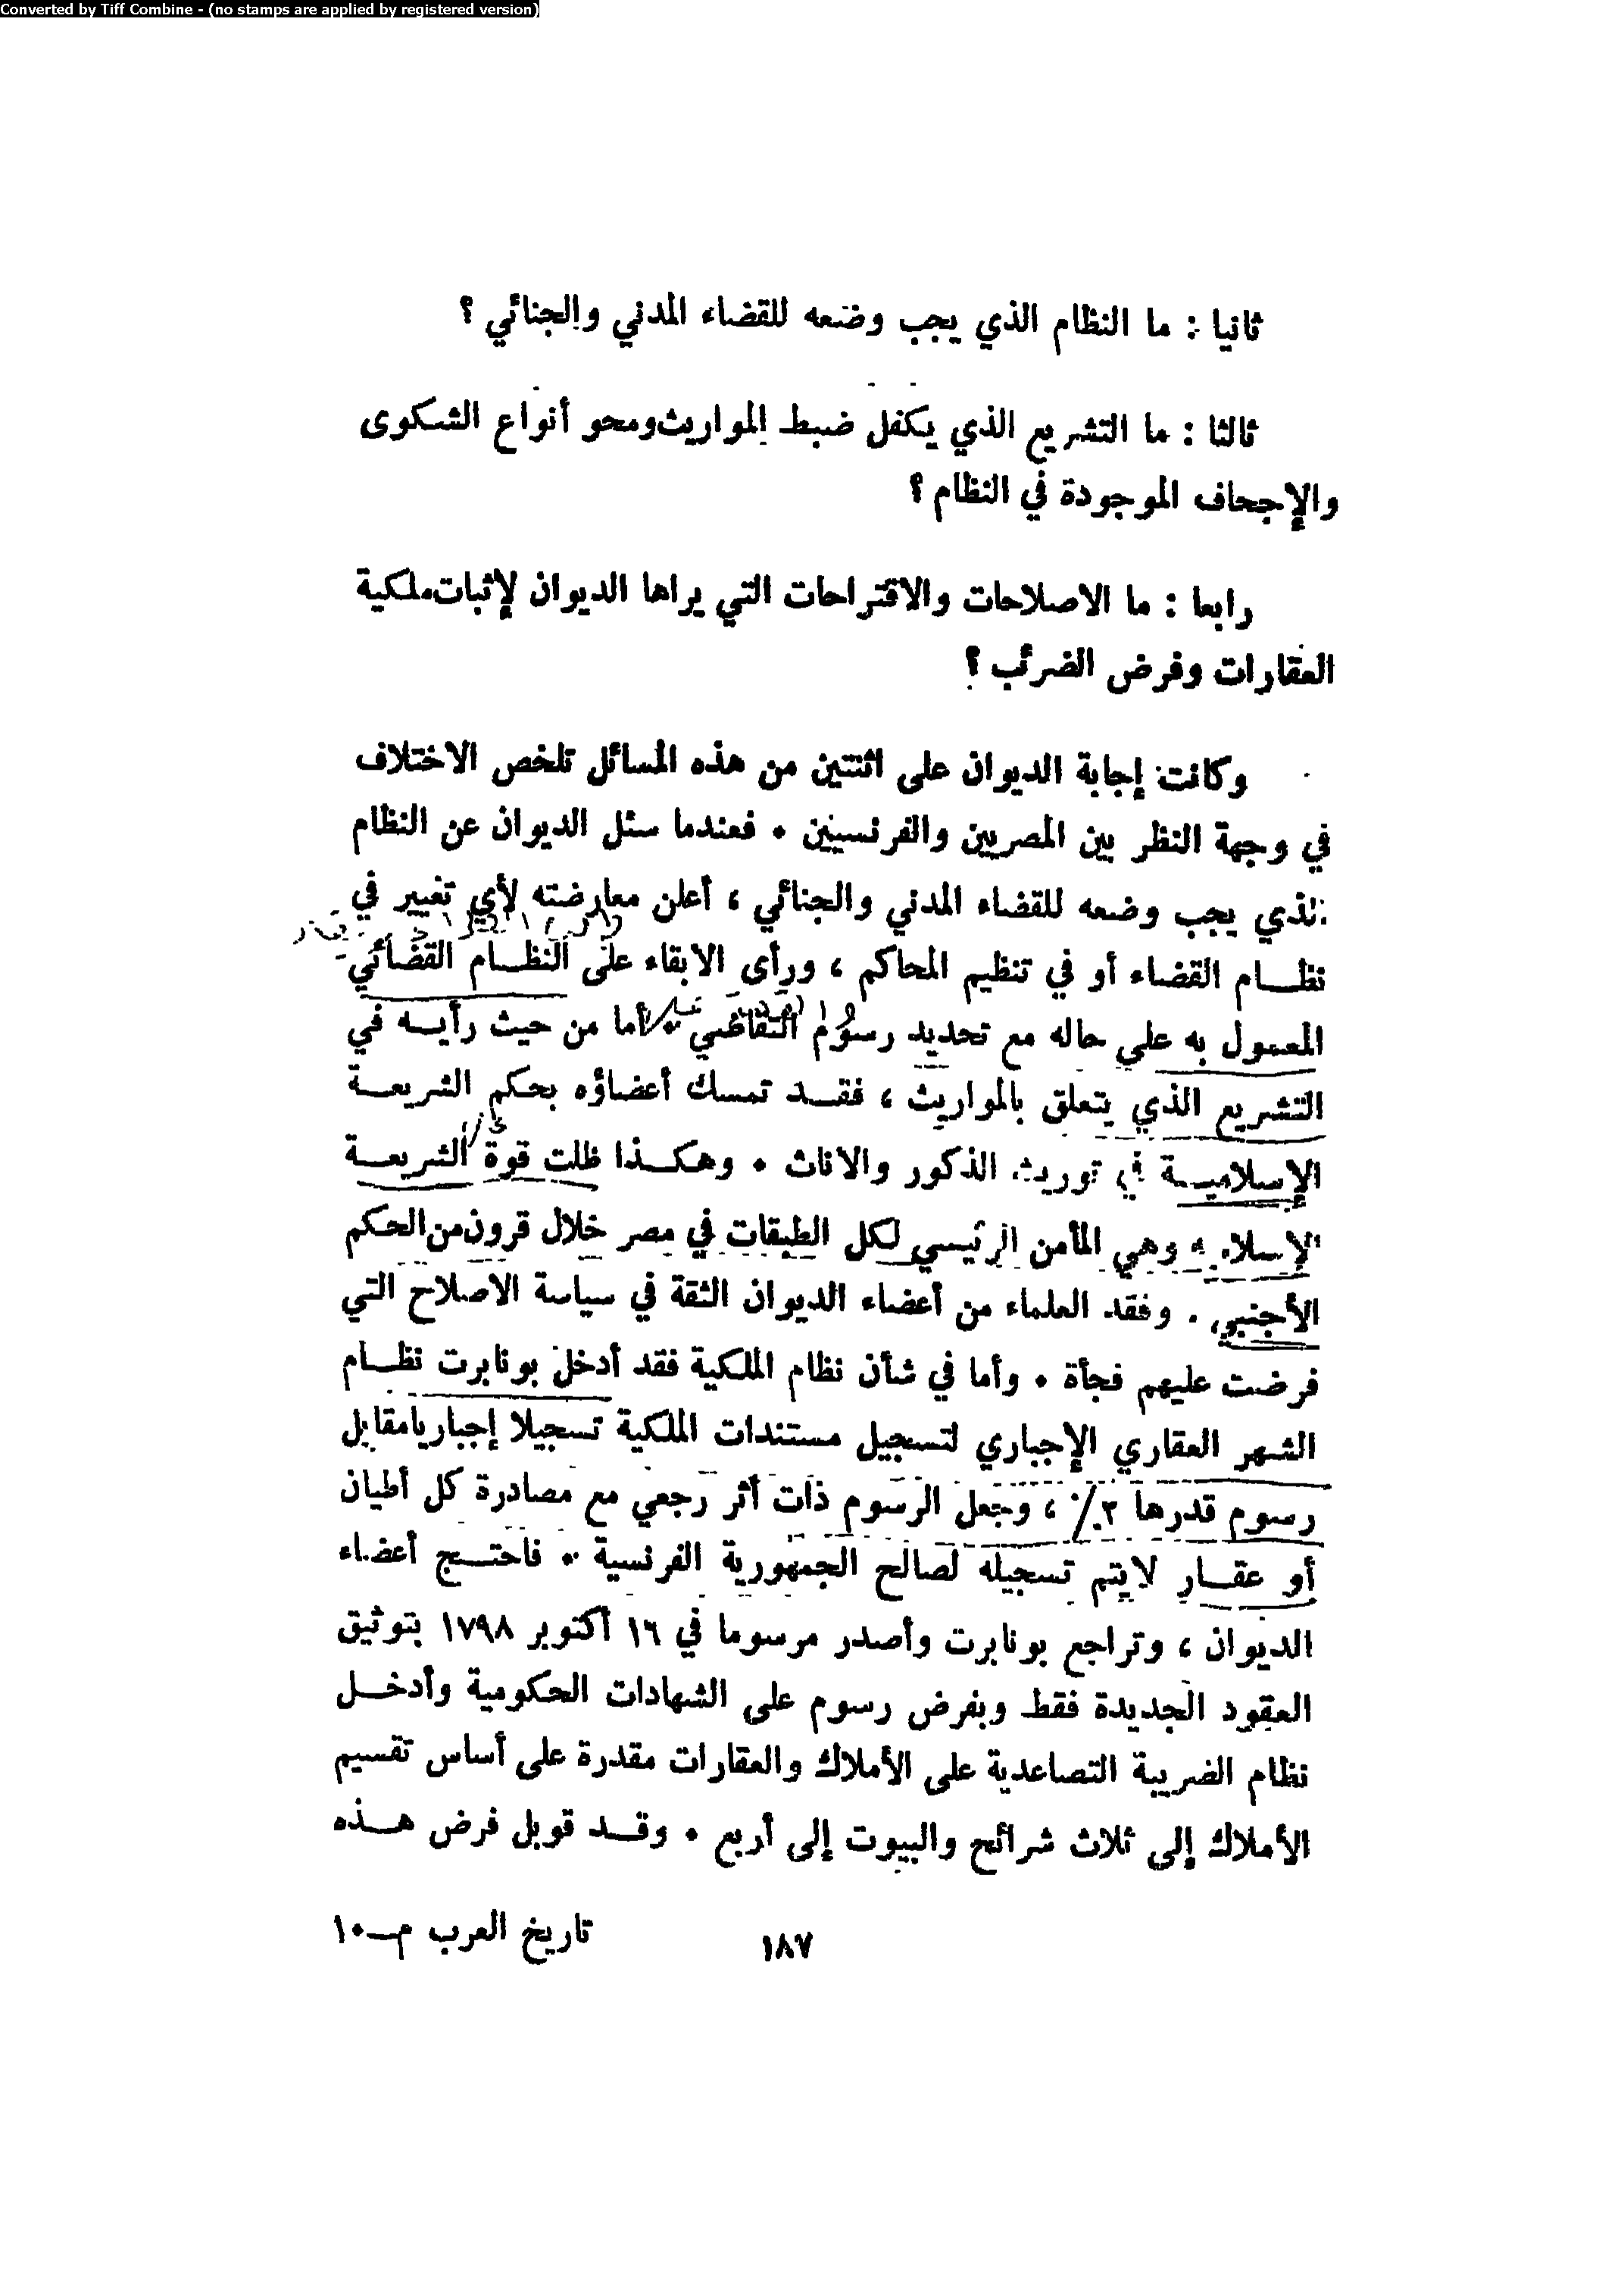 Converted by Tiff Combine - (no stamps are applied by registered version)
ثانيا : ما النظام الذي يجب وضعه للقضاء المدني والجنائي ؟
ثالثا : ما التشريع الذي يكفل ضبط المواريث ومحو أنواع الشكوى
والإجحاف الموجودة في النظام ؟
رابعا : ما الاصلاحات والاقتراحات التي يراها الديوان لإثبات ملكية
العقارات وفرض الضرئب ؟
وكانت إجابة الديوان على اثنتين من هذه المسائل تلخص الاختلاف
في وجهة النظر بين المصريين والفرنسيين . فعندما سئل الديوان عن النظام
الذي يجب وضعه للقضاء المدني والجنائي ، أعلن معارضته لأي تغيير في
نظام القضاء أو في تنظيم المحاكم ، ورأى الابقاء على النظام القضائي
المعمول به على حاله مع تحديد رسوم التقاضي . أما من حيث رأيه في
التشريع الذي يتعلق بالمواريث ، فقد تمسك أعضاؤه بحكم الشريعة
الإسلامية في توريث الذكور والاناث . وهكذا ظلت قوة الشريعة
الإسلامية وهي المأمن الرئيسي لكل الطبقات في مصر خلال قرون من الحكم
الأجنبي . وفقد العلماء من أعضاء الديوان الثقة في سياسة الاصلاح التي
فرضت عليهم فجأة . وأما في شأن نظام الملكية فقد أدخل بونابرت نظام
الشهر العقاري الإجباري لتسجيل مستندات الملكية تسجيلا إجباريا مقابل
رسوم قدرها ٢٪ ، وجعل الرسوم ذات أثر رجعي مع مصادرة كل أطيان
أو عقار لايتم تسجيله لصالح الجمهورية الفرنسية . فاحتج أعضاء
الديوان ، وتراجع بونابرت وأصدر مرسوما في ١٦ أكتوبر ١٧٩٨ بتوثيق
العقود الجديدة فقط وبفرض رسوم على الشهادات الحكومية وأدخل
نظام الضريبة التصاعدية على الأملاك والعقارات مقدرة على أساس تقسيم
الأملاك إلى ثلاث شرائح والبيوت إلى أربع . وقد قوبل فرض هذه
١٨٧
تاريخ العرب م-١٠